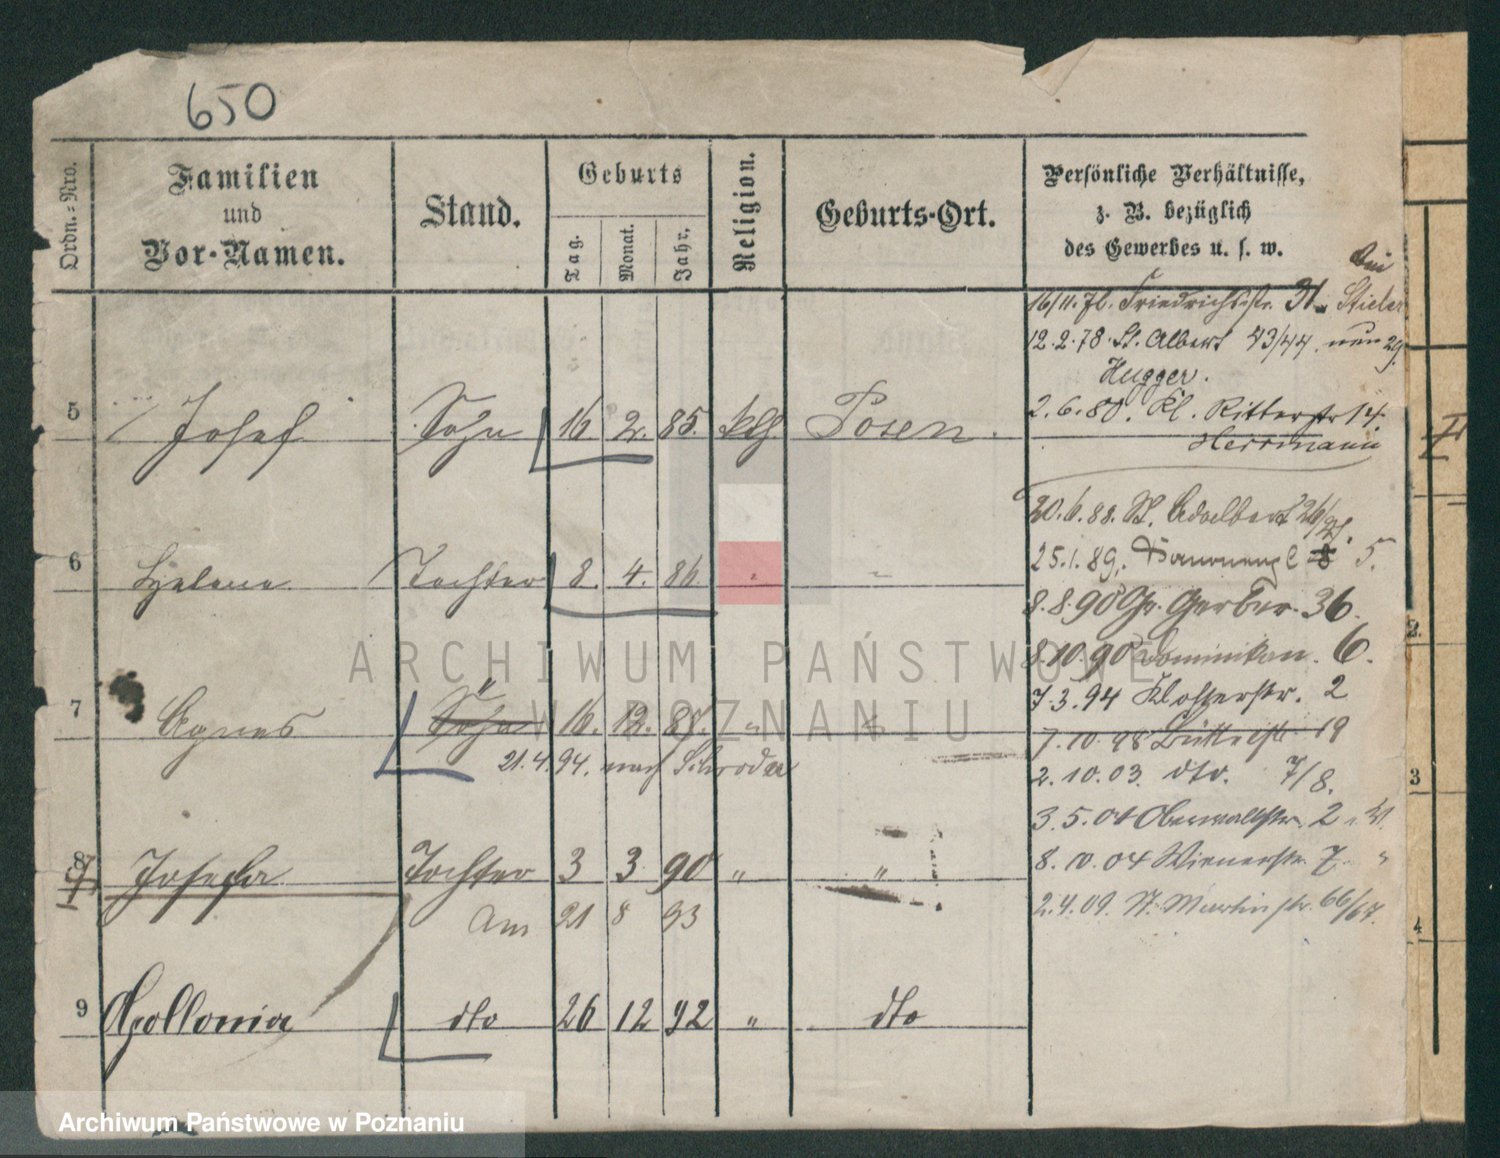 650
Ordn.=Nro.
Familien
und
Vor-Namen.
Stand.
Geburts
Tag.
Monat.
Jahr.
Religion.
Geburts-Ort.
Persönliche Verhältnisse,
z. B. bezüglich
des Gewerbes u. s. w.
bei
16/11. Friedrichstr. 31 Stieler
12.2.78. St. Albert 43/44 nun 29.
Hugger.
2.6.80. Kl. Ritterstr 14.
Herrmann
5 Josef Sohn 16 2. 85. kth. Posen.
20.6.88. St. Adalbert 26/27.
25.1.89. 8 5.
6 Helene Tochter 8. 4. 86 " "
8.8.90 Gr. Gerber. 36.
8.10.90 Dominikan. 6.
7.3.94 Klosterstr. 2
7 Agnes Sohn " 16. 12. 88. " "
7.10.98 Büttelstr. 19
21.4.94. nach Schroda
2.10.03. dto. 7/8.
3.5.04 Oberwallstr. 2
8 Josefa Tochter 3 3 90 " "
8.10.04 Wienerstr. 7 "
am 21 8 93
2.4.09. St. Martinstr. 66/67.
9 Apollonia dto 26 12 92 " dto
2.
3
4
ARCHIWUM PAŃSTWOWE
W POZNANIU
Archiwum Państwowe w Poznaniu